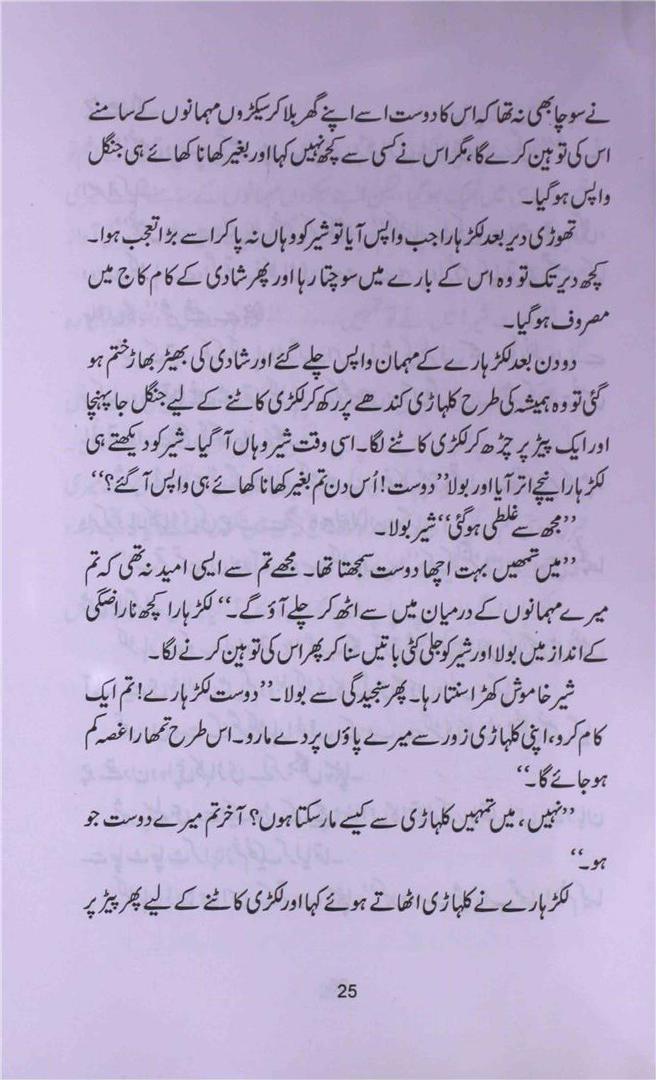 نے سوچا بھی نہ تھا کہ اس کا دوست اسے اپنے گھر بلا کر سیکڑوں مہمانوں کے سامنے
اس کی توہین کرے گا، مگر اس نے کسی سے کچھ نہیں کہا اور بغیر کھانا کھائے ہی جنگل
واپس ہو گیا۔
تھوڑی دیر بعد لکڑہارا جب واپس آیا تو شیر کو وہاں نہ پا کر اسے بڑا تعجب ہوا۔
کچھ دیر تک تو وہ اس کے بارے میں سوچتا رہا اور پھر شادی کے کام کاج میں
مصروف ہو گیا۔
دو دن بعد لکڑہارے کے مہمان واپس چلے گئے اور شادی کی بھیڑ بھاڑ ختم ہو
گئی تو وہ ہمیشہ کی طرح کلہاڑی کندھے پر رکھ کر لکڑی کاٹنے کے لیے جنگل جا پہنچا
اور ایک پیڑ پر چڑھ کر لکڑی کاٹنے لگا۔ اسی وقت شیر وہاں آ گیا۔ شیر کو دیکھتے ہی
لکڑہارا نیچے اتر آیا اور بولا ”دوست! اُس دن تم بغیر کھانا کھائے ہی واپس آ گئے؟“
”مجھ سے غلطی ہو گئی“ شیر بولا۔
”میں تمھیں بہت اچھا دوست سمجھتا تھا۔ مجھے تم سے ایسی امید نہ تھی کہ تم
میرے مہمانوں کے درمیان میں سے اٹھ کر چلے آؤ گے۔“ لکڑہارا کچھ ناراضگی
کے انداز میں بولا اور شیر کو جلی کٹی باتیں سنا کر پھر اس کی توہین کرنے لگا۔
شیر خاموش کھڑا سنتا رہا۔ پھر سنجیدگی سے بولا۔ ”دوست لکڑہارے! تم ایک
کام کرو، اپنی کلہاڑی زور سے میرے پاؤں پر دے مارو۔ اس طرح تمھارا غصہ کم
ہو جائے گا۔“
”نہیں، میں تمہیں کلہاڑی سے کیسے مار سکتا ہوں؟ آخر تم میرے دوست جو
ہو۔“
لکڑہارے نے کلہاڑی اٹھاتے ہوئے کہا اور لکڑی کاٹنے کے لیے پھر پیڑ پر
25